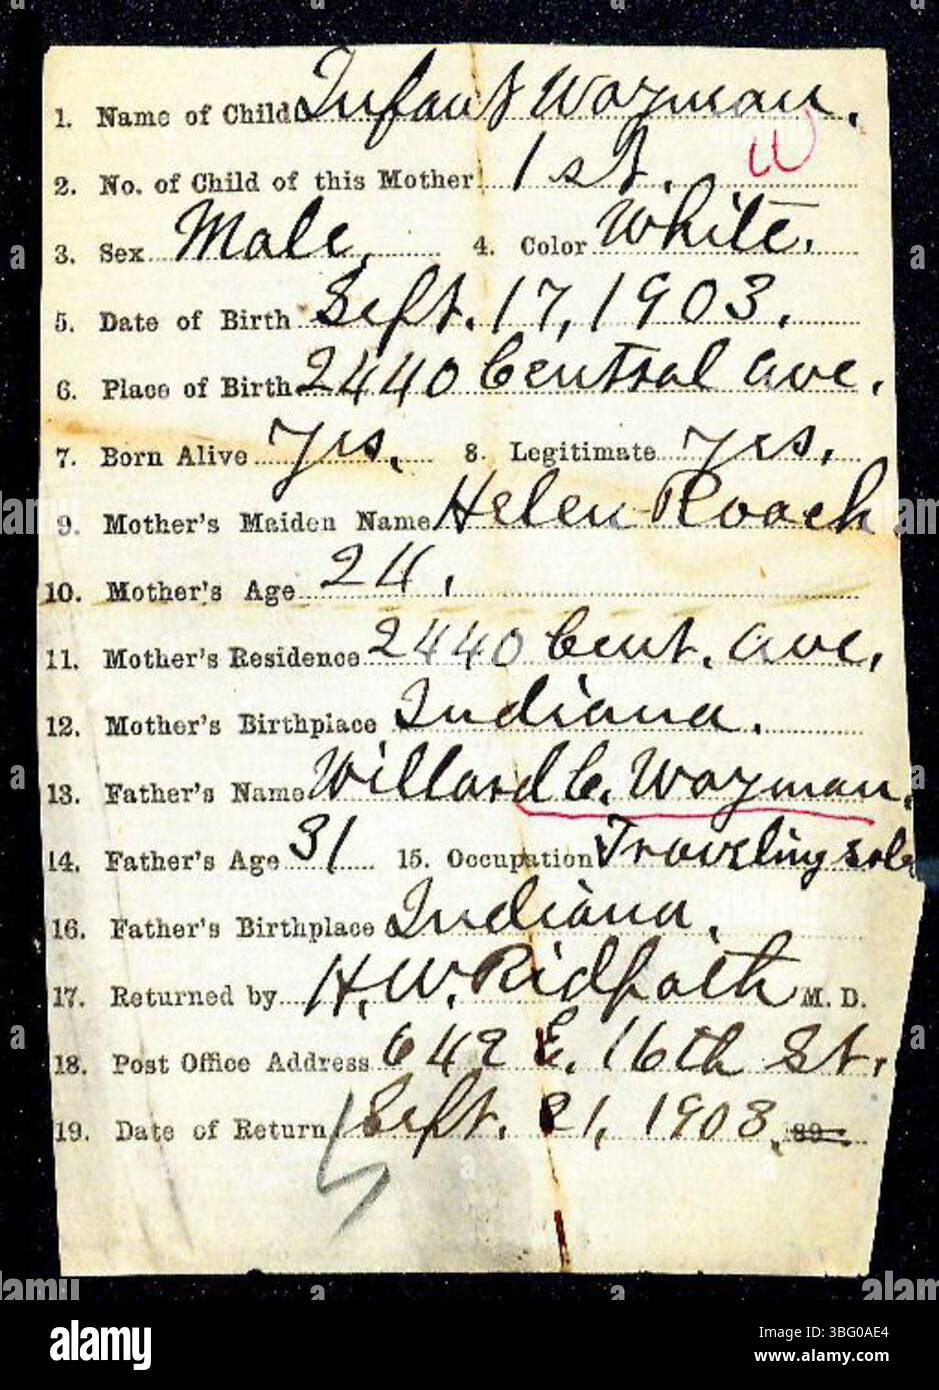 1. Name of Child Infant Wayman.
W
2. No. of Child of this Mother 1st.
3. Sex Male. 4. Color White.
5. Date of Birth Sept. 17, 1903.
6. Place of Birth 2440 Central Ave.
7. Born Alive Yes. 8. Legitimate Yes.
9. Mother's Maiden Name Helen Roach
10. Mother's Age 24.
11. Mother's Residence 2440 Cent. Ave.
12. Mother's Birthplace Indiana.
13. Father's Name Willard C. Wayman.
14. Father's Age 31 15. Occupation Traveling sales
16. Father's Birthplace Indiana.
17. Returned by H. W. Ridpath M. D.
18. Post Office Address 642 E. 16th St.
19. Date of Return Sept. 21, 1903. 89
alamy
Image ID: 3BG0AE4
www.alamy.com